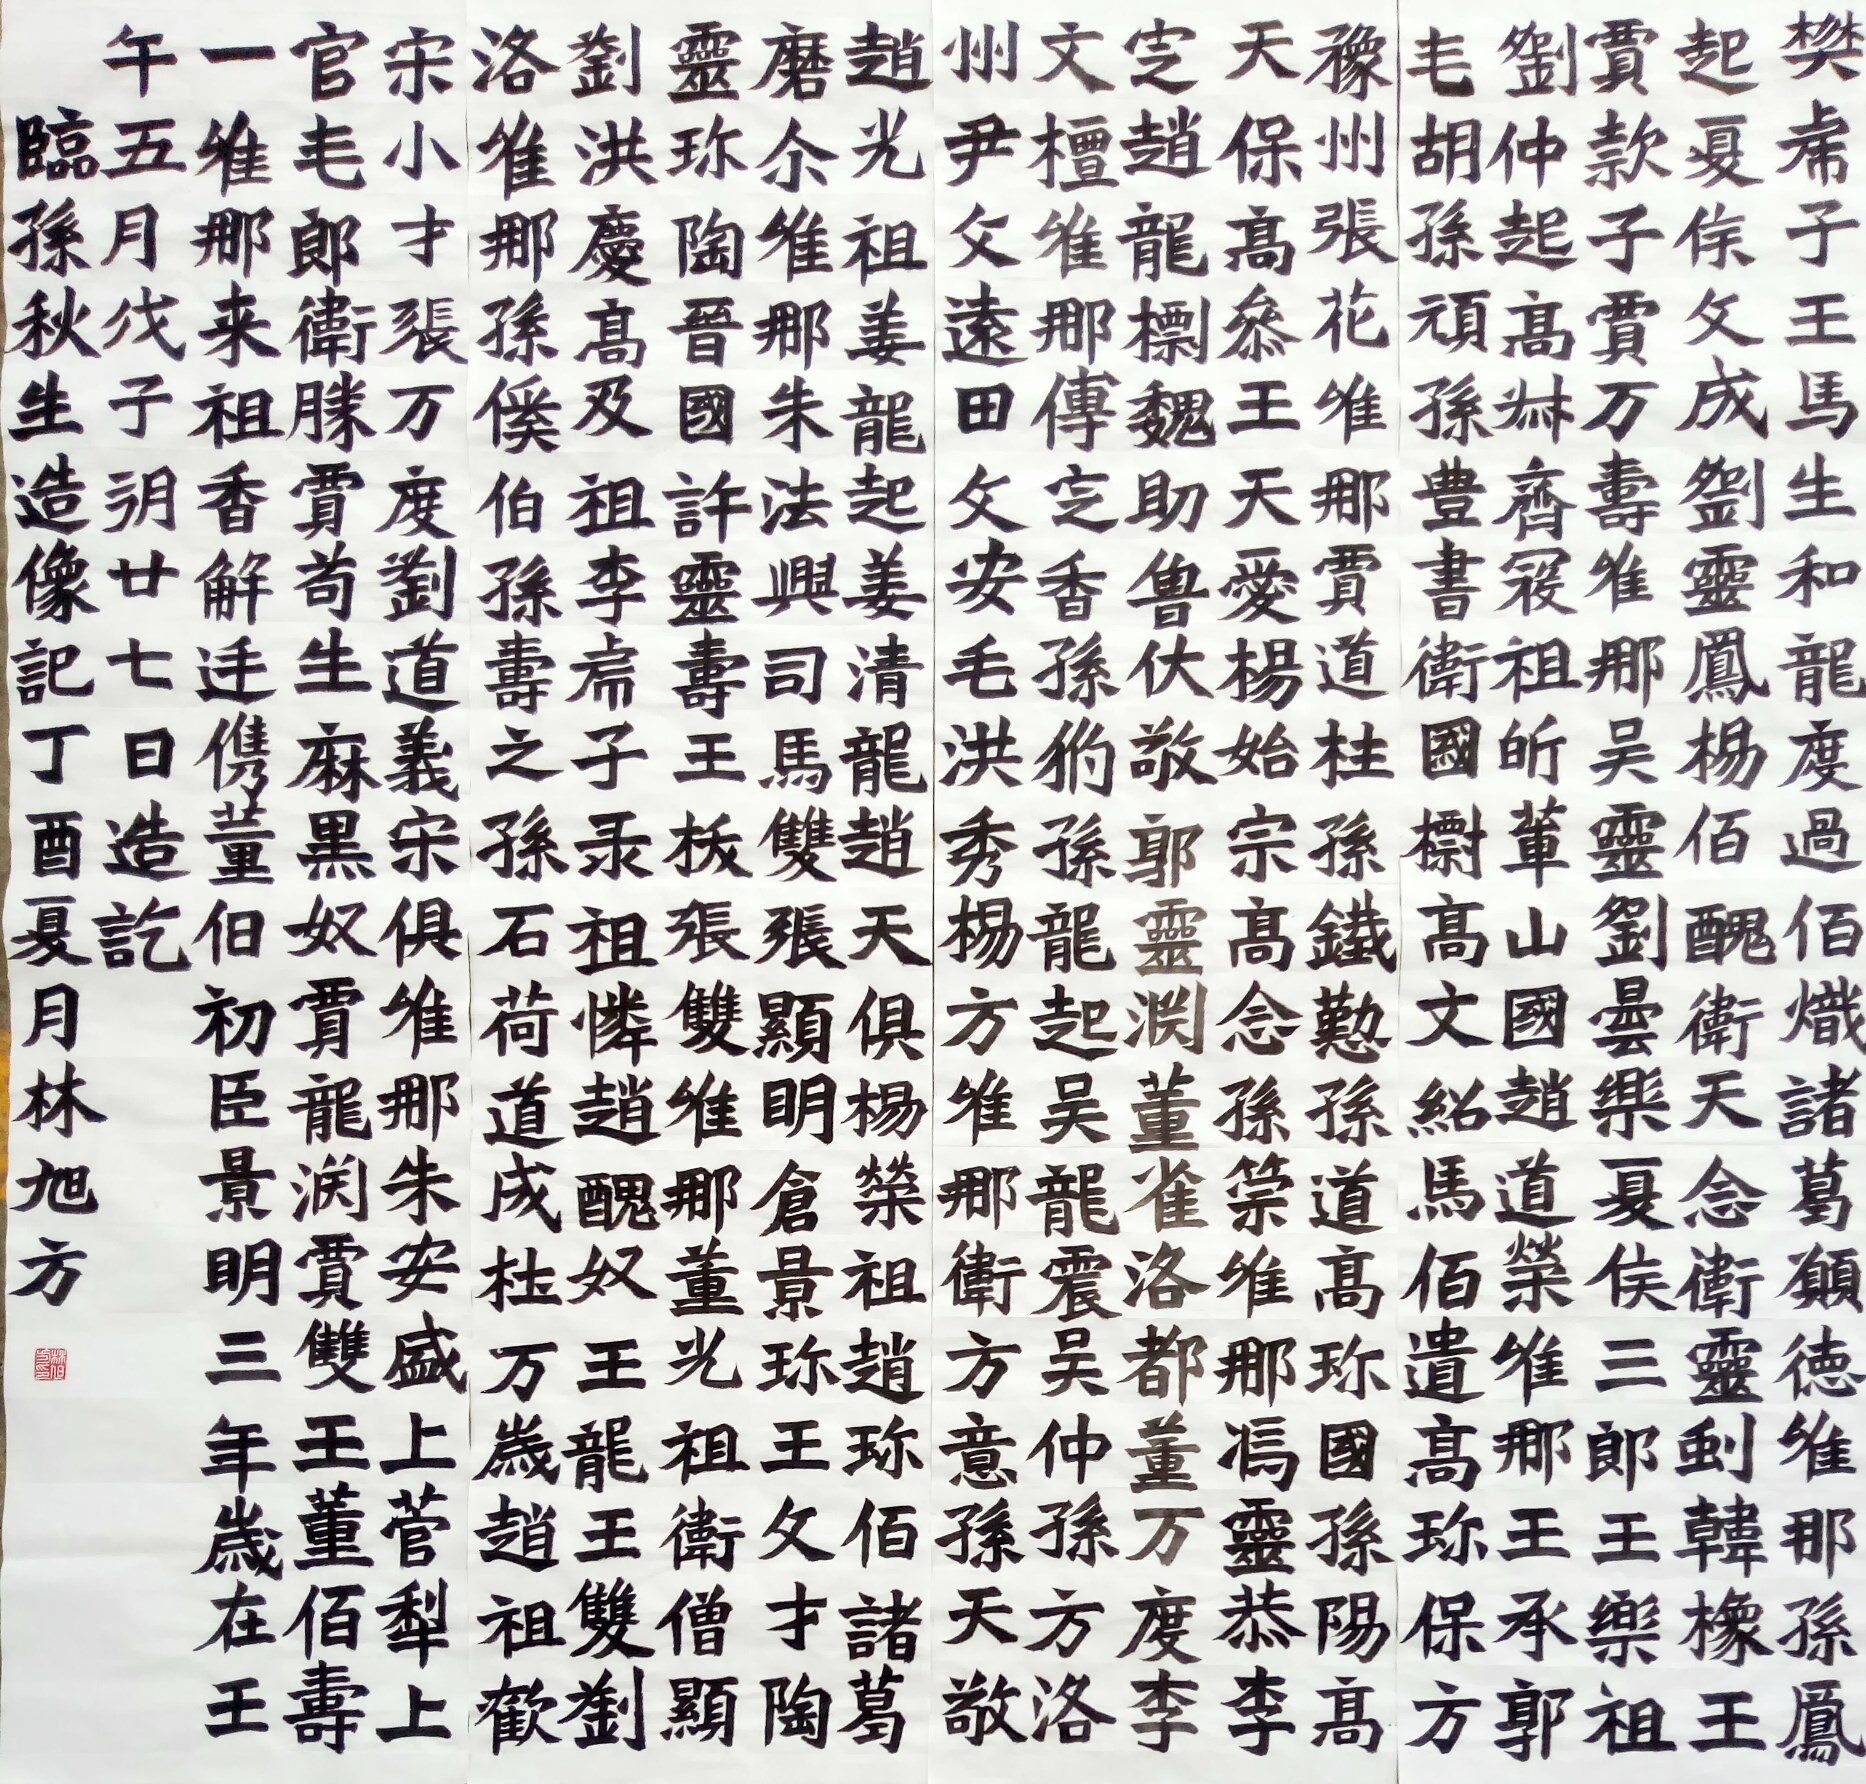 樊虎子王馬生和龍度過佰熾諸葛願德維那孫鳳
起夏侯文成劉靈鳳楊佰醜衛天念衛靈劉韓橡王
賈款子賈万壽維那吴靈劉曇樂夏侯三郎王樂祖
劉仲起高齊寇祖昕輩山國趙道榮維那王承郭
毛胡孫頑孫豊書衛國樹高文紹馬佰遺高珍保方
豫州張花維那賈道柱孫鐵懃孫道高珍國孫陽高
天保高叅王天愛楊始宗高念孫崇維那馮靈恭李
定趙龍標魏助魯伏敬郭靈渊董雀洛都董万度李
文檀維那傳定香孫豹孫龍起吴龍震吴仲孫方洛
州尹文遠田文安毛洪秀楊方維那衛方意孫天敬
趙光祖姜龍起姜清龍趙天俱楊榮祖趙珍佰諸葛
磨尒維那朱法興司馬雙張顯明倉景珍王文才陶
靈珍陶晉國許靈壽王拔張雙維那董光祖衛僧顯
劉洪慶高及祖李虎子录祖憐趙醜奴王龍王雙劉
洛維那孫傒伯孫壽之孫石荷道成杜万歲趙祖歡
宋小才張万度劉道義宋俱維那朱安盛上菅犁上
官毛郎衛勝賈苟生麻黒奴賈龍渊賈雙王董佰壽
一維那来祖香解廷儁董伯初臣景明三年歲在壬
午五月戊子朔廿七日造訖
臨孫秋生造像記丁酉夏月林旭方